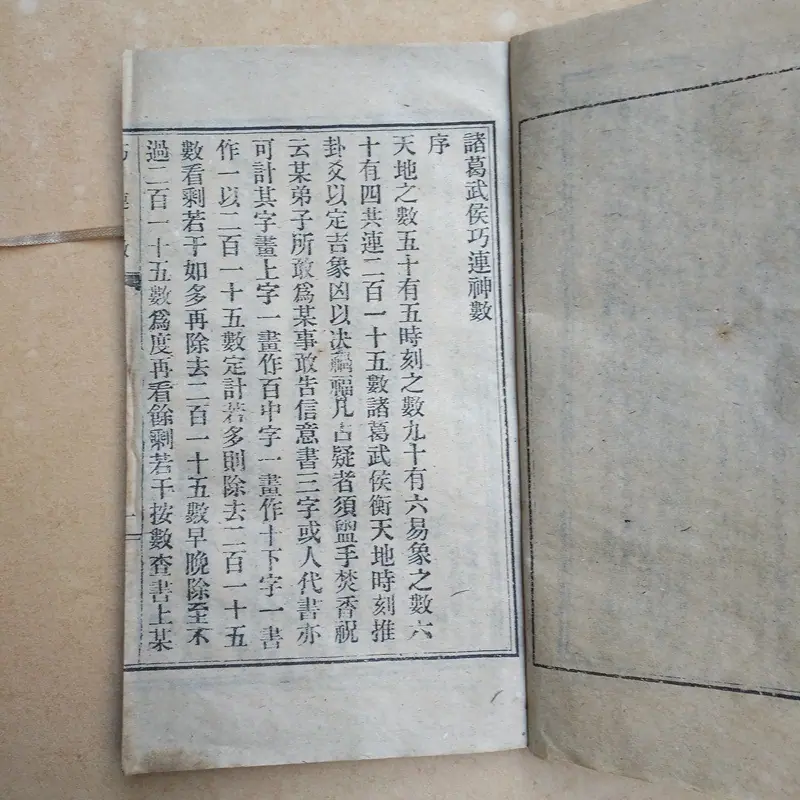 諸葛武侯巧連神數
序
天地之數五十有五時刻之數九十有六易象之數六
十有四共連二百一十五數諸葛武侯衡天地時刻推
卦爻以定吉象凶以决禍福凡占疑者須盥手焚香祝
云某弟子所敢爲某事敢告信意書三字或人代書亦
可計其字畫上字一畫作百中字一畫作十下字一書
作一以二百一十五數定計若多則除去二百一十五
數看剩若干如多再除去二百一十五數早晚除至不
過二百一十五數爲度再看餘剩若干按數查書上某